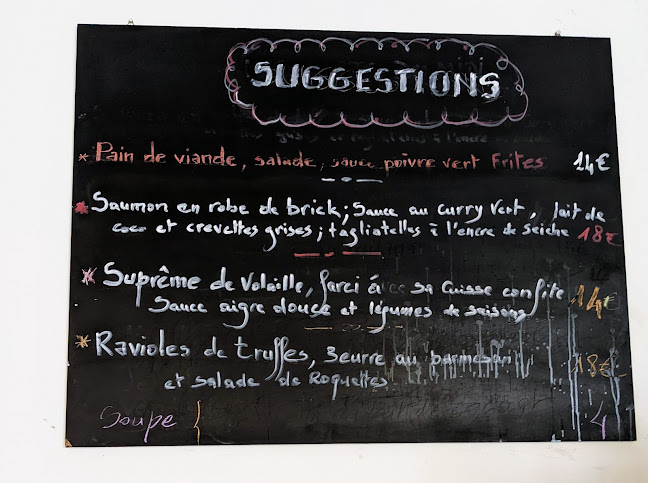 SUGGESTIONS
* Pain de viande, salade, sauce poivre vert Frites 14€
* Saumon en robe de brick; Sauce au curry vert, lait de
coco et crevettes grises; tagliatelles à l'encre de seiche 18€
* Suprême de Volaille, farci avec sa Cuisse confite
Sauce aigre douce et légumes de saisons 14€
* Ravioles de truffes, Beurre au parmesan 18€
et salade de Roquettes
Soupe 4